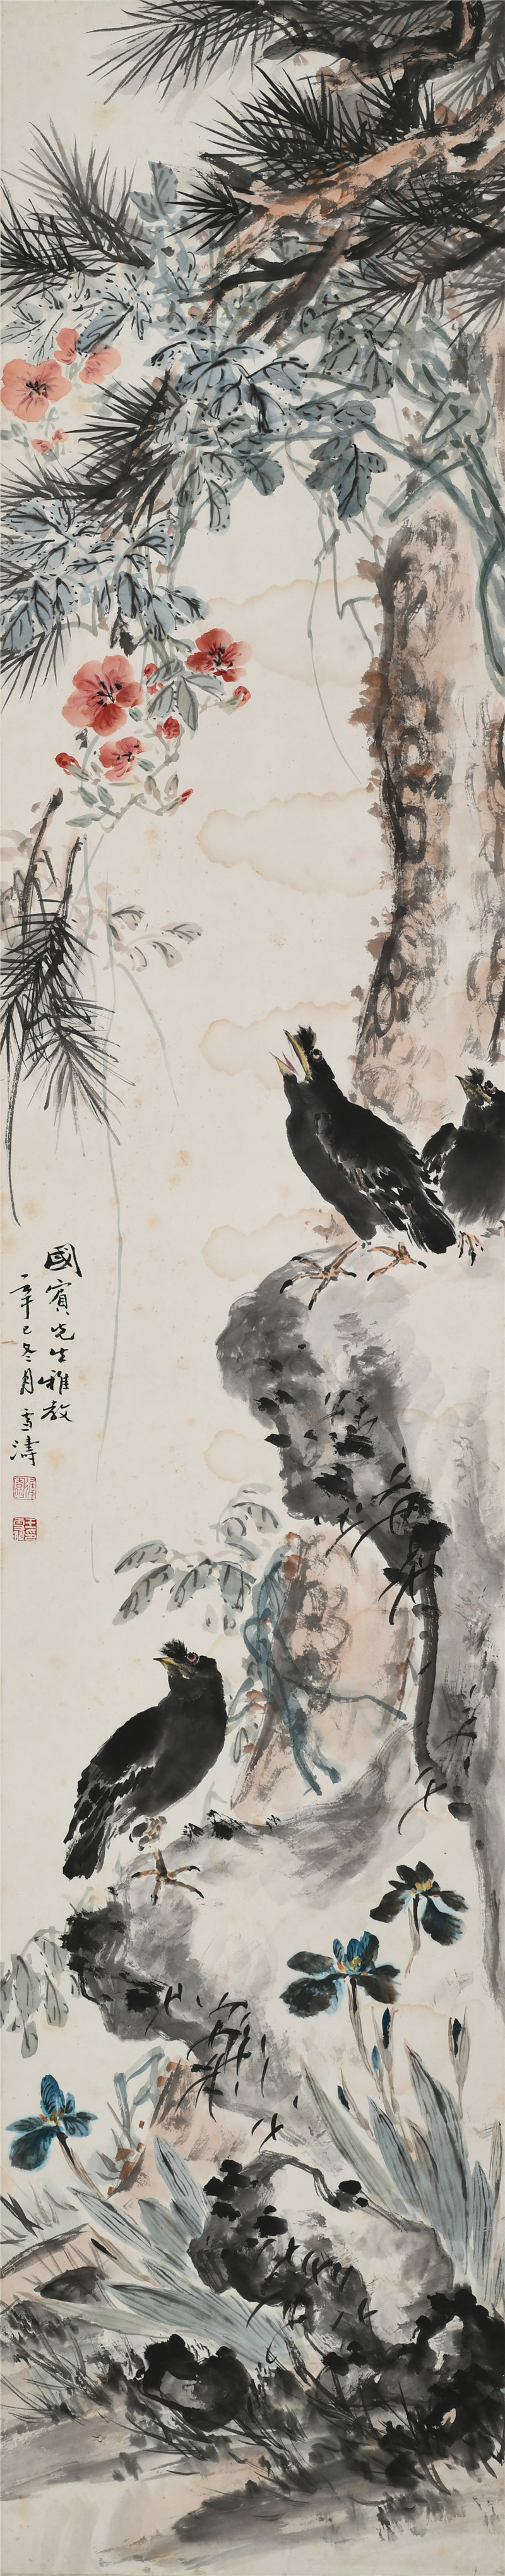 國賓先生雅教
辛巳冬月雪濤